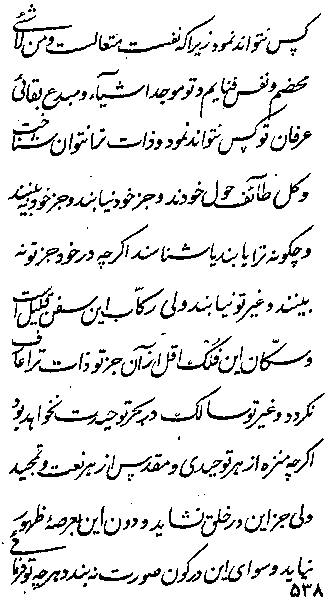 کس نتواند نمود زیرا که نفست متعالست و من لاشئی
محضیم و نفس فنایم و تو موجد اشیاء و مبدع بقائی
عرفان تو کس نتواند نمود و ذات ترا نتوان شناخت
و کل طائف حول خودند و جز خود نیابند و جز خود نبینند
و چگونه ترا یابند یا شناسند اگر چه در خود جز تو نه
بینند و غیر تو نیابند ولی رکاب این سفن قلیل است
و سکان این فلک اقل از آن جز تو ذات ترا عارف
نگردد و غیر تو سالک در بحر توحیدت نخواهد بود
اگر چه منزه از هر توحیدی و مقدس از هر نعت و تمجید
ولی جز این در خلق نشاید و دون این بعرصهٔ ظهور
نیاید و سوای این در کون صورت نه بندد هر چه تو فرمائی
۵۳۸